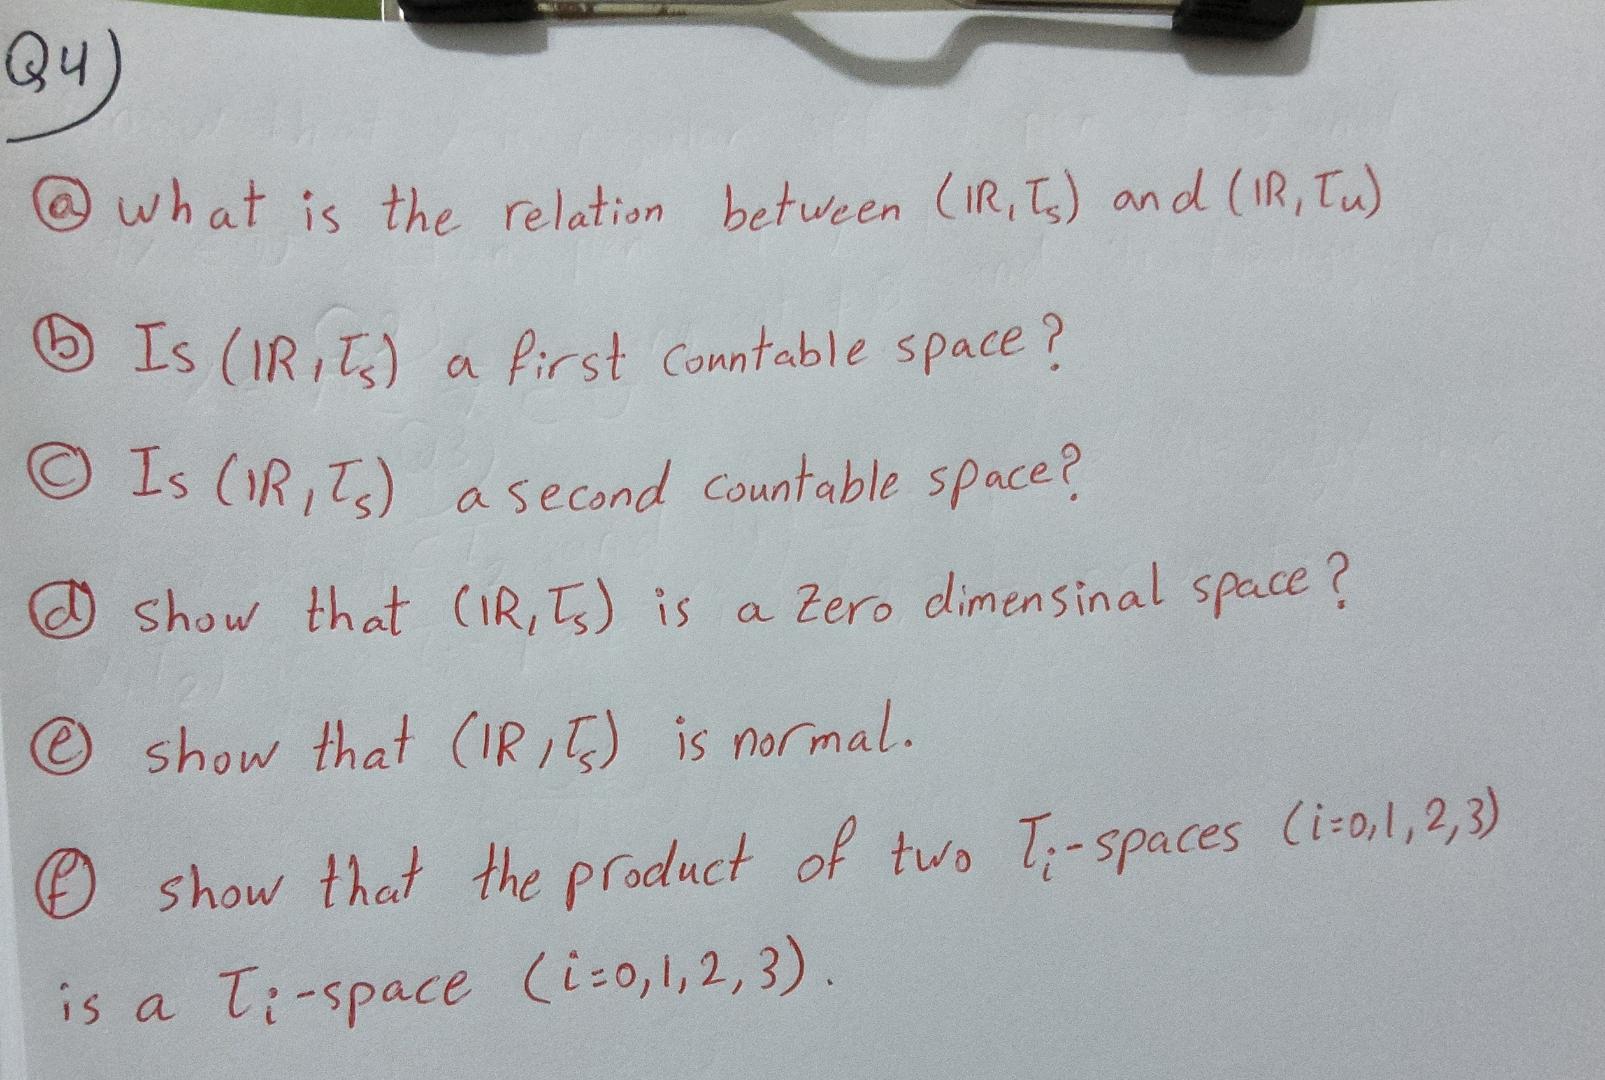 Q4)
ⓐ what is the relation between (IR, τs) and (IR, τu)
ⓑ Is (IR, τs) a first countable space?
ⓒ Is (IR, τs) a second countable space?
ⓓ show that (IR, τs) is a zero dimensinal space?
ⓔ show that (IR, τs) is normal.
ⓕ show that the product of two Ti-spaces (i=0,1,2,3)
is a Ti-space (i=0,1,2,3).